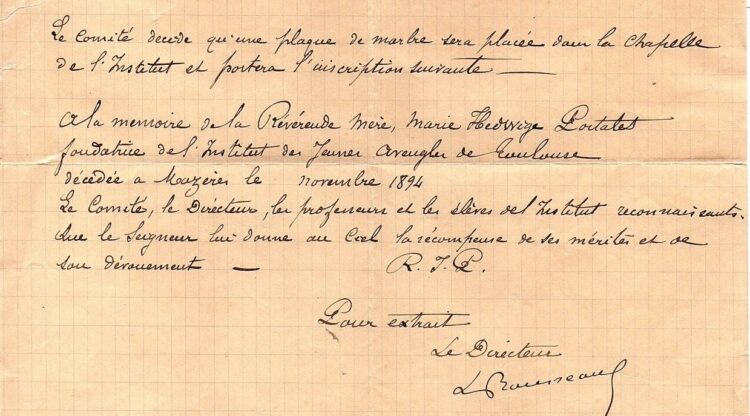 Le Comité decide qu'une plaque de marbre sera placée dans la Chapelle
de l'Institut et portera l'inscription suivante —
A la memoire de la Révérende Mère, Marie Hedwige Portalet
fondatrice de l'Institut des Jeunes Aveugles de Toulouse
décédée a Mazères le novembre 1894
Le Comité, le Directeur, les professeurs et les élèves de l'Institut reconnaissants.
Que le Seigneur lui donne au Ciel la récompense de ses mérites et de
son dévouement — R. I. P.
Pour extrait
Le Directeur
L Rousseau